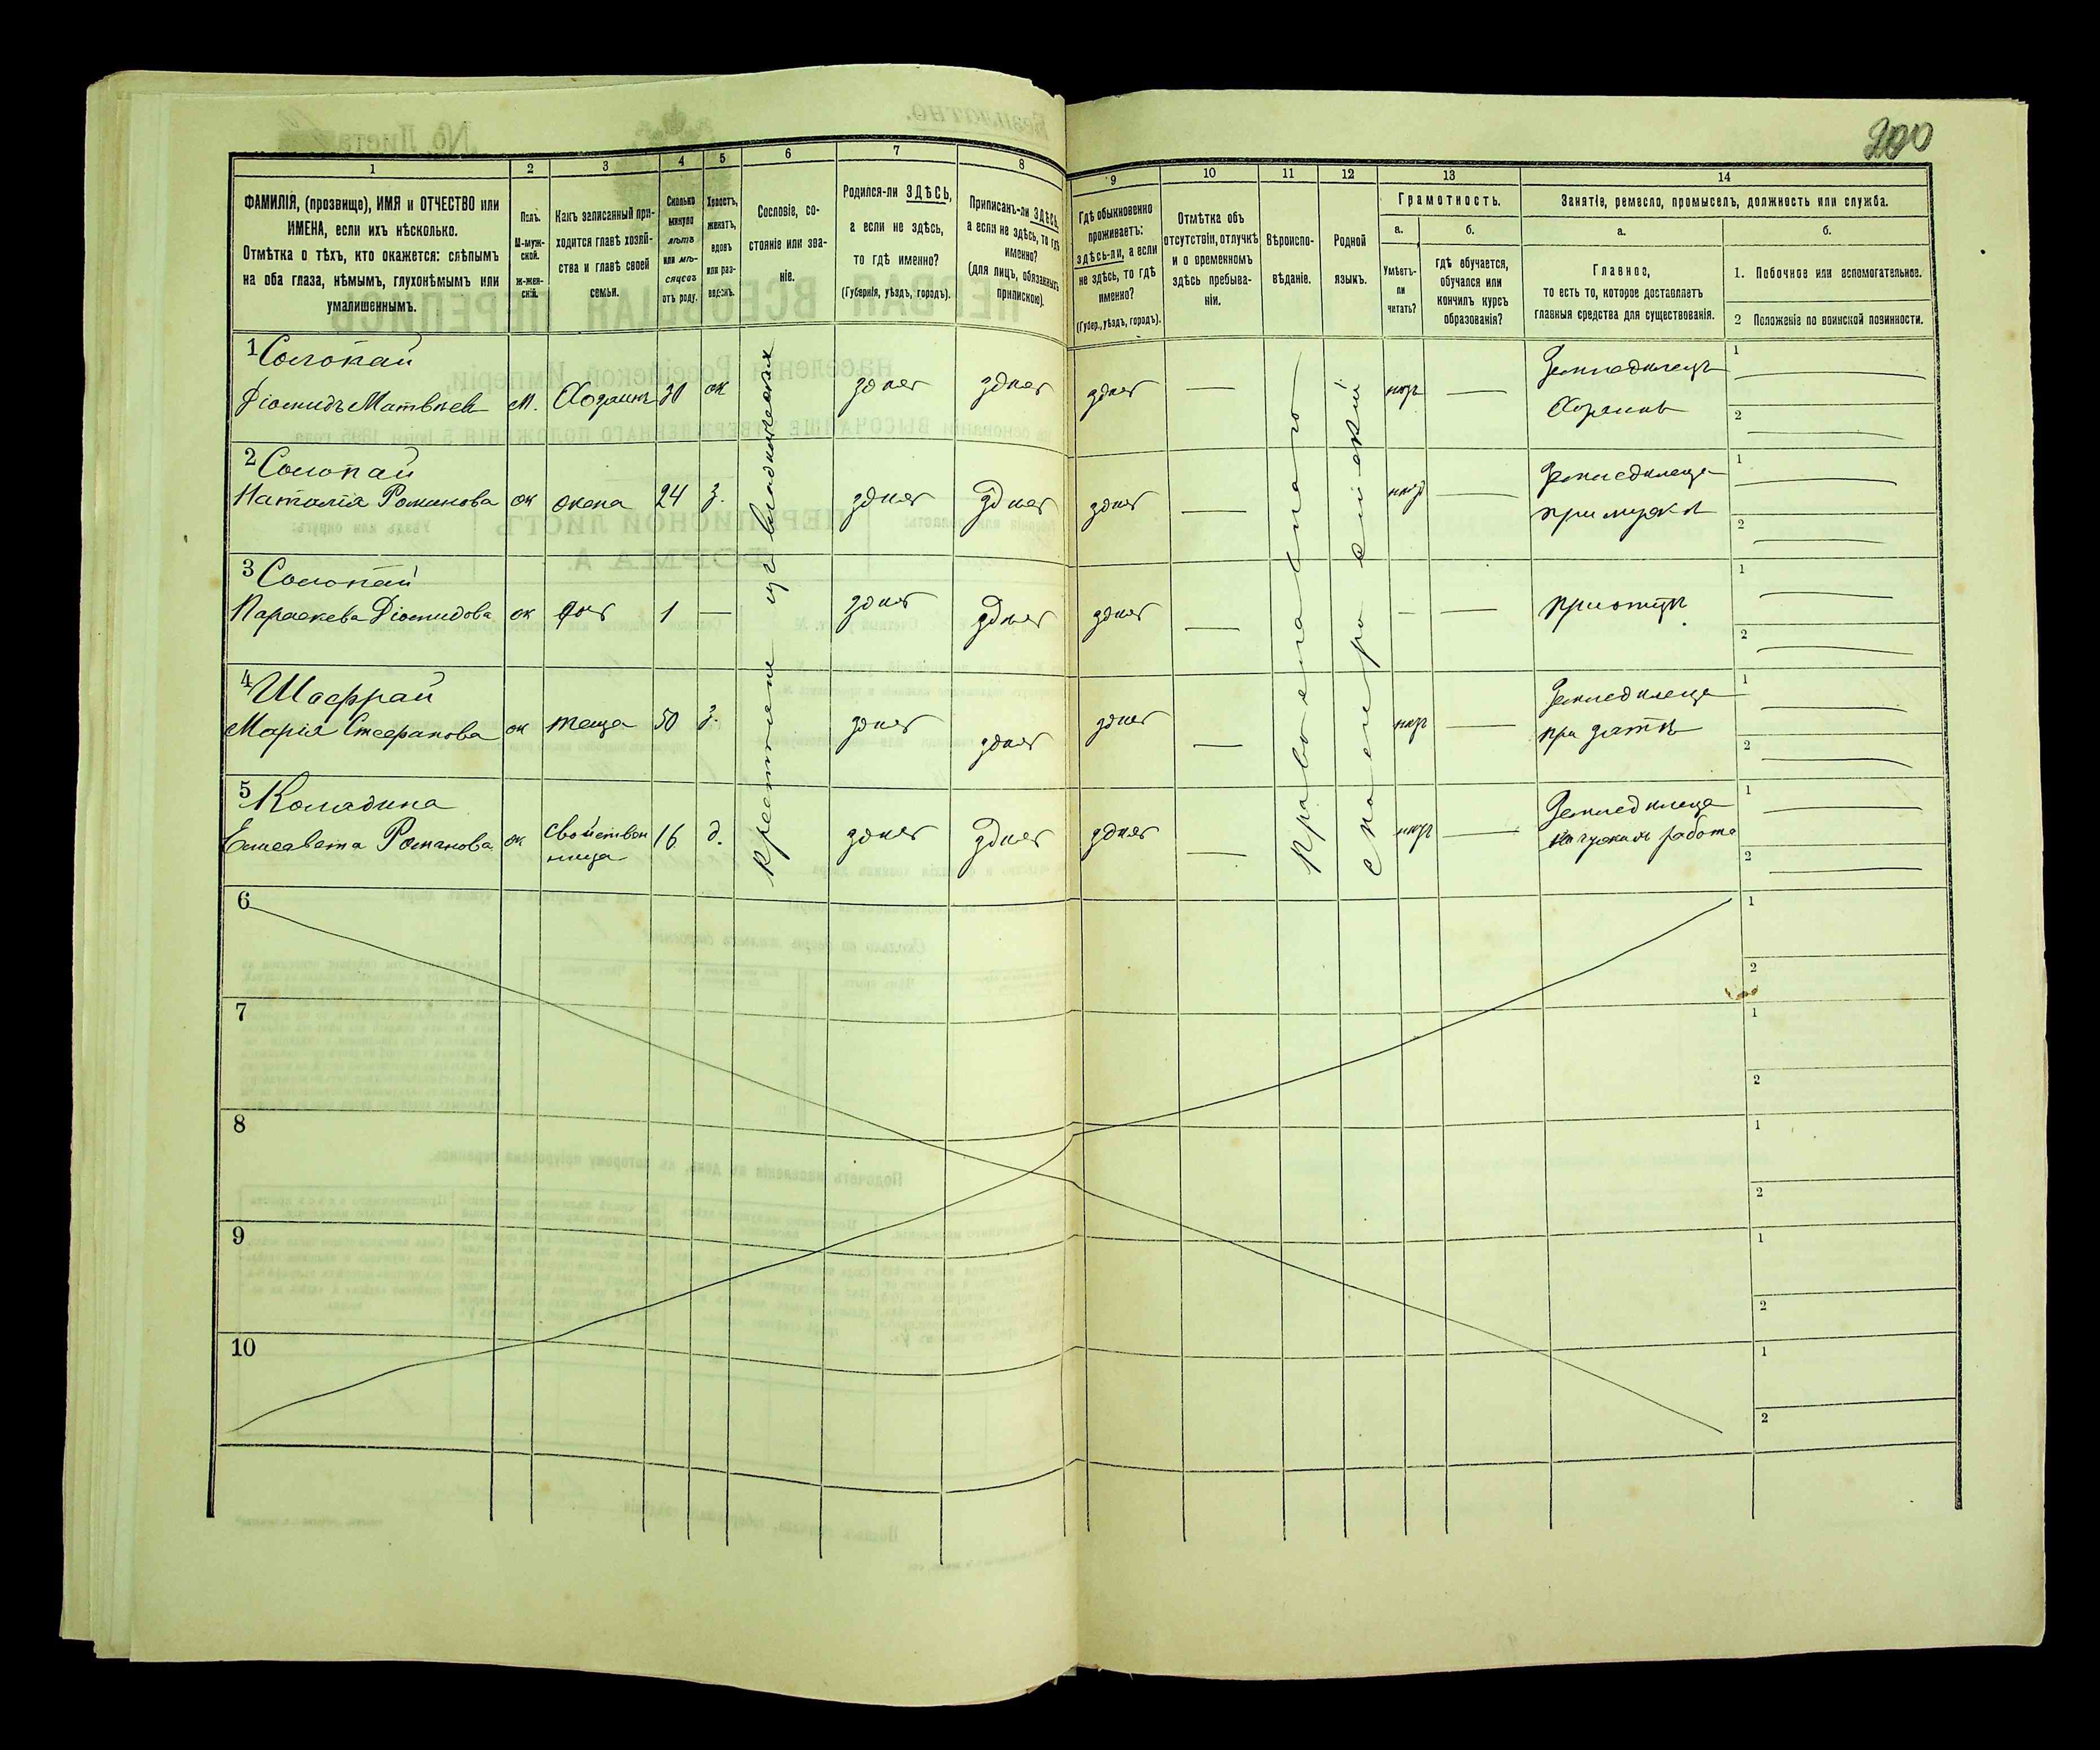 200
1 2 3 4 5 6 7 8 9 10 11 12 13 14
ФАМИЛІЯ, (прозвище), ИМЯ и ОТЧЕСТВО или
ИМЕНА, если ихъ нѣсколько.
Отмѣтка о тѣхъ, кто окажется: слѣпымъ
на оба глаза, нѣмымъ, глухонѣмымъ или
умалишеннымъ.
Полъ.
М-муж-
ской.
Ж-жен-
скій.
Какъ записанный при-
ходится главѣ хозяй-
ства и главѣ своей
семьи.
Сколько
минуло
лѣтъ
или мѣ-
сяцевъ
отъ роду.
Холостъ,
женатъ,
вдовъ
или раз-
веденъ.
Сословіе, со-
стояніе или зва-
ніе.
Родился-ли ЗДѢСЬ,
а если не здѣсь,
то гдѣ именно?
(Губернія, уѣздъ, городъ).
Приписанъ-ли ЗДѢСЬ,
а если не здѣсь, то гдѣ
именно?
(для лицъ, обязанныхъ
припиской).
Гдѣ обыкновенно
проживаетъ:
здѣсь-ли, а если
не здѣсь, то гдѣ
именно?
(Губер., уѣздъ, городъ).
Отмѣтка объ
отсутствіи, отлучкѣ
и о временномъ
здѣсь пребыва-
ніи.
Вѣроиспо-
вѣданіе.
Родной
языкъ.
Грамотность.
а.
Умѣетъ-
ли
читать?
б.
гдѣ обучается,
обучался или
кончилъ курсъ
образованія?
Занятіе, ремесло, промыселъ, должность или служба.
а.
Главное,
то есть то, которое доставляетъ
главныя средства для существованія.
б.
1. Побочное или вспомогательное.
2 Положеніе по воинской повинности.
крестьяне изъ владѣльческихъ
Православнаго
1 Солопай
Діомидъ Матвѣев м. Хозяинъ 30 ж здѣсь здѣсь здѣсь — нѣтъ — Земледѣлецъ
Хозяинъ
1
2
2 Солопай
Наталія Романова ж жена 24 з. здѣсь здѣсь здѣсь — нѣтъ — Земледѣлица
при мужѣ
1
2
3 Солопай
Параскева Діомидова ж дочь 1 — здѣсь здѣсь здѣсь — — — при отцѣ
1
2
4 Шаффрай
Марія Стефанова ж теща 50 з. здѣсь здѣсь здѣсь — нѣтъ — Земледѣлица
при зятѣ
1
2
5 Колядина
Елисавета Романова ж свойствен
ница 16 д. здѣсь здѣсь здѣсь — нѣтъ — Земледѣлица
работа
1
2
6
1
2
7
1
2
8
1
2
9
1
2
10
1
2